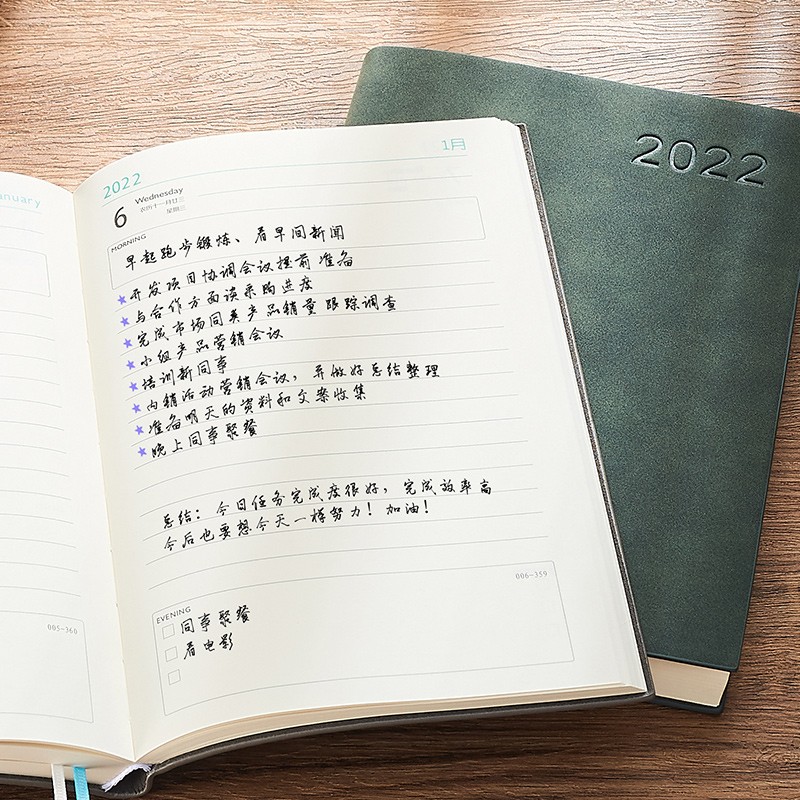 2022
anuary
2022
1月
6
Wednesday
MORNING
早起跑步锻炼、看早间新闻
★开发项目协调会议提前准备
★与合作方面谈采购进度
★完成市场同类产品销量跟踪调查
★小组产品营销会议
★培训新同事
★内销活动营销会议，并做好总结整理
★准备明天的资料和文案收集
★晚上同事聚餐
总结：今日任务完成度很好，完成效率高
今后也要想今天一样努力！加油！
006~359
EVENING
同事聚餐
看电影
005~360